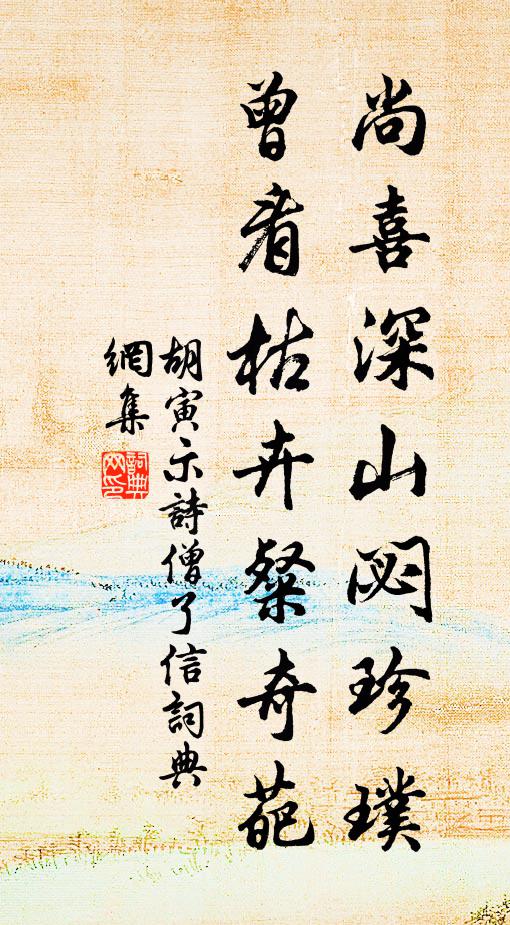 尚喜深山閟珍璞
曾看枯卉粲奇葩
胡寅示詩僧了信詞典
網集
詞典网印